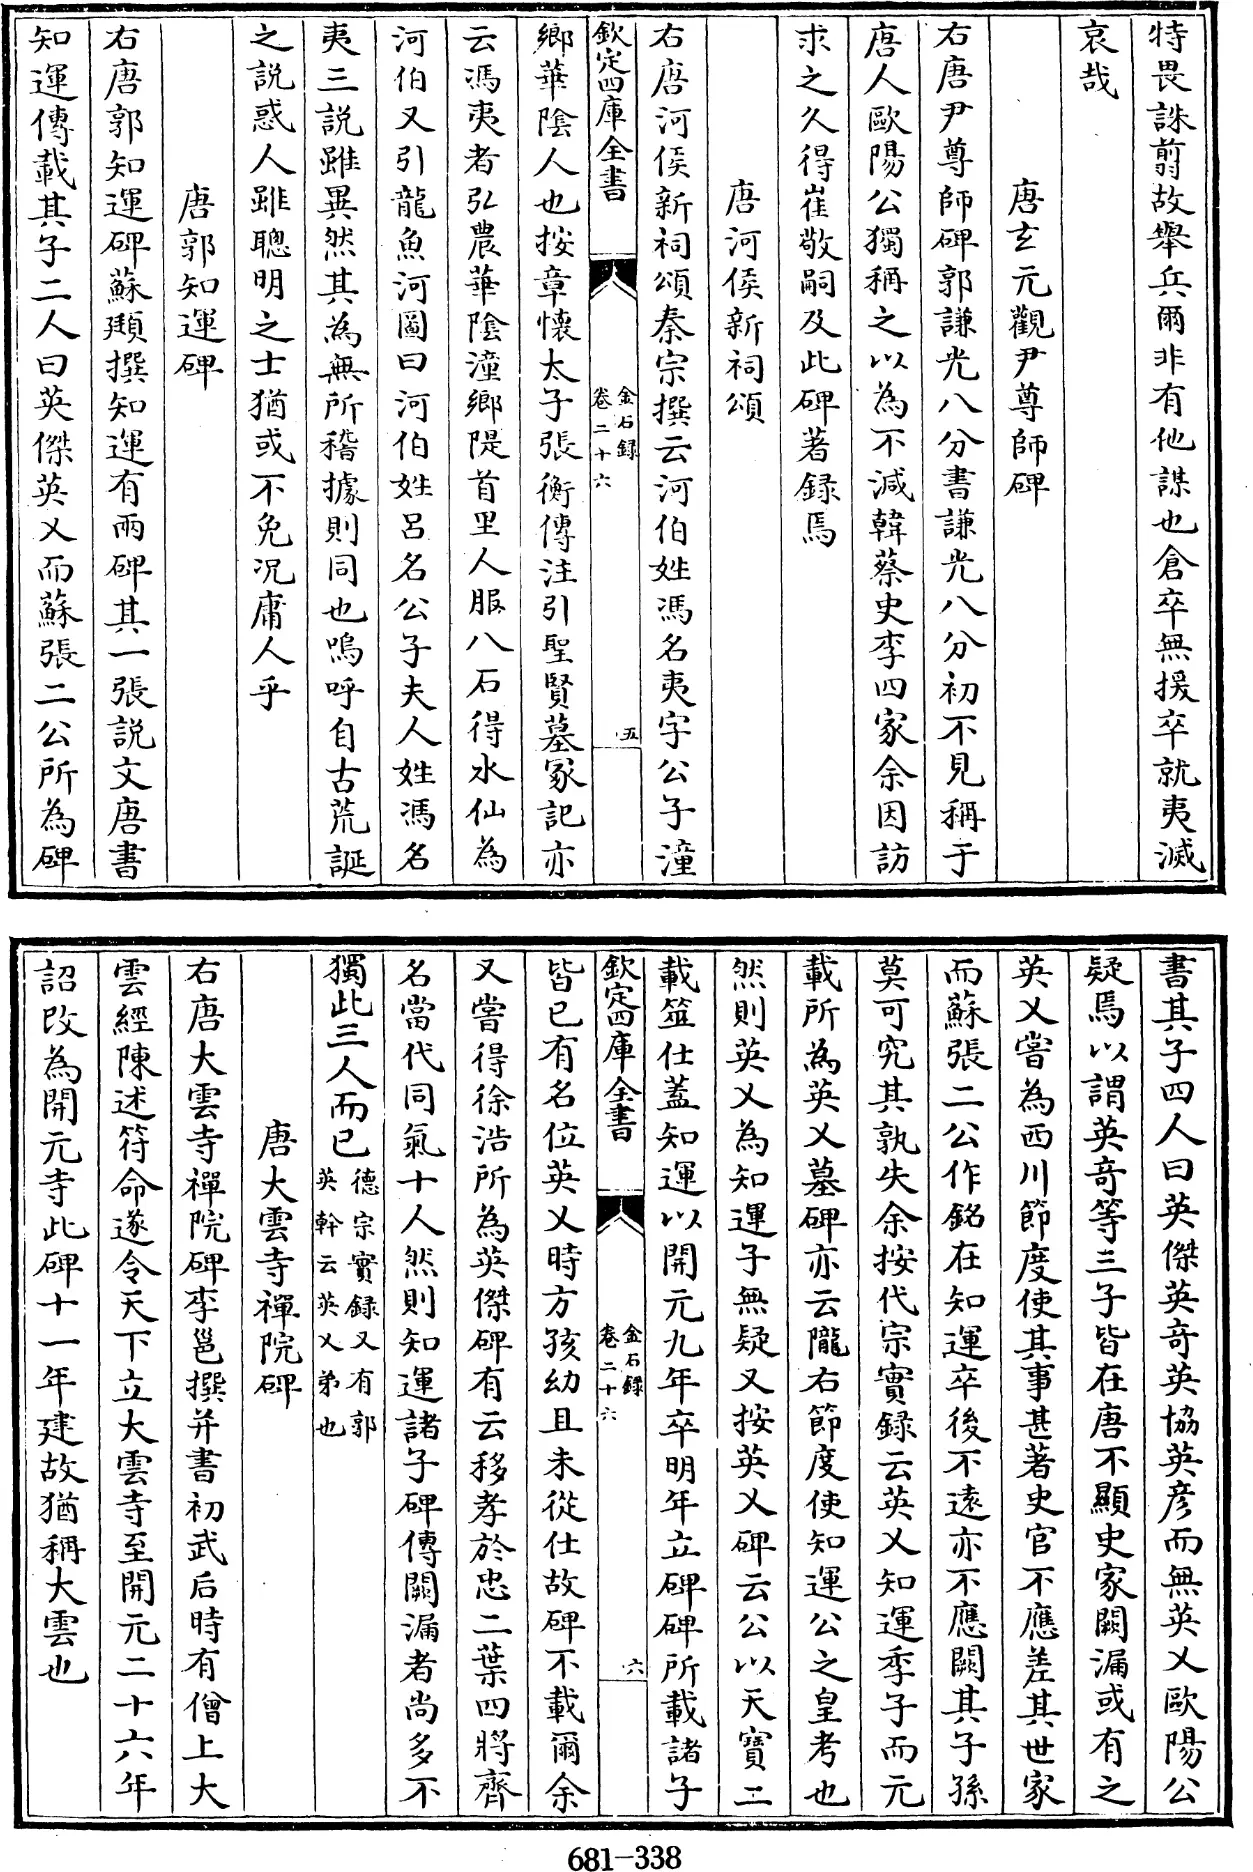 特畏誅翦故舉兵爾非有他謀也倉卒無援卒就夷滅
哀哉
唐玄元觀尹尊師碑
右唐尹尊師碑郭謙光八分書謙光八分初不見稱于
唐人歐陽公獨稱之以為不減韓蔡史李四家余因訪
求之久得崔敬嗣及此碑著録焉
唐河侯新祠頌
右唐河侯新祠頌秦宗撰云河伯姓馮名夷字公子潼
欽定四庫全書
金石録
卷二十六
五
鄉華隂人也按章懷太子張衡傳注引聖賢墓冢記亦
云馮夷者弘農華隂潼鄉隄首里人服八石得水仙為
河伯又引龍魚河圖曰河伯姓呂名公子夫人姓馮名
夷三説雖異然其為無所稽據則同也嗚呼自古荒誕
之説惑人雖聰明之士猶或不免况庸人乎
唐郭知運碑
右唐郭知運碑蘇頲撰知運有兩碑其一張説文唐書
知運傳載其子二人曰英傑英乂而蘇張二公所為碑
書其子四人曰英傑英奇英協英彦而無英乂歐陽公
疑焉以謂英奇等三子皆在唐不顯史家闕漏或有之
英乂嘗為西川節度使其事甚著史官不應差其世家
而蘇張二公作銘在知運卒後不逺亦不應闕其子孫
莫可究其孰失余按代宗實録云英乂知運季子而元
載所為英乂墓碑亦云隴右節度使知運公之皇考也
然則英乂為知運子無疑又按英乂碑云公以天寶二
載筮仕蓋知運以開元九年卒明年立碑碑所載諸子
欽定四庫全書
金石録
卷二十六
六
皆已有名位英乂時方孩幼且未從仕故碑不載爾余
又嘗得徐浩所為英傑碑有云移孝於忠二葉四將齊
名當代同氣十人然則知運諸子碑傳闕漏者尚多不
獨此三人而已德宗實録又有郭英幹云英乂弟也
唐大雲寺禪院碑
右唐大雲寺禪院碑李邕撰并書初武后時有僧上大
雲經陳述符命遂令天下立大雲寺至開元二十六年
詔改為開元寺此碑十一年建故猶稱大雲也
681-338